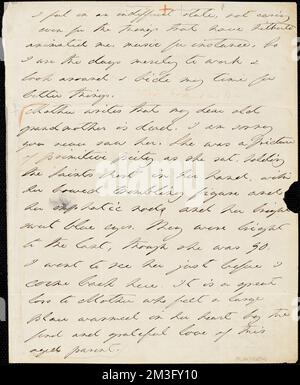 I fall in an indifferent state, not caring
even for the things that have hitherto
animated me, music for instance. So
I use the days merely to work &
look around & bide my time for
better things.
Mother writes that my dear old
grandmother is dead. I am sorry
you never saw her. She was a picture
of primitive piety, as she sat holding
the saints rest in her hand, with
her bowed, trembling figure and
her emphatic nods, and her bright
sweet blue eyes. They were bright
to the last, though she was 90.
I went to see her just before I
came back here. It is a great
loss to Mother who felt a large
place warmed in her heart by the
fond and grateful love of this
aged parent.
alamy